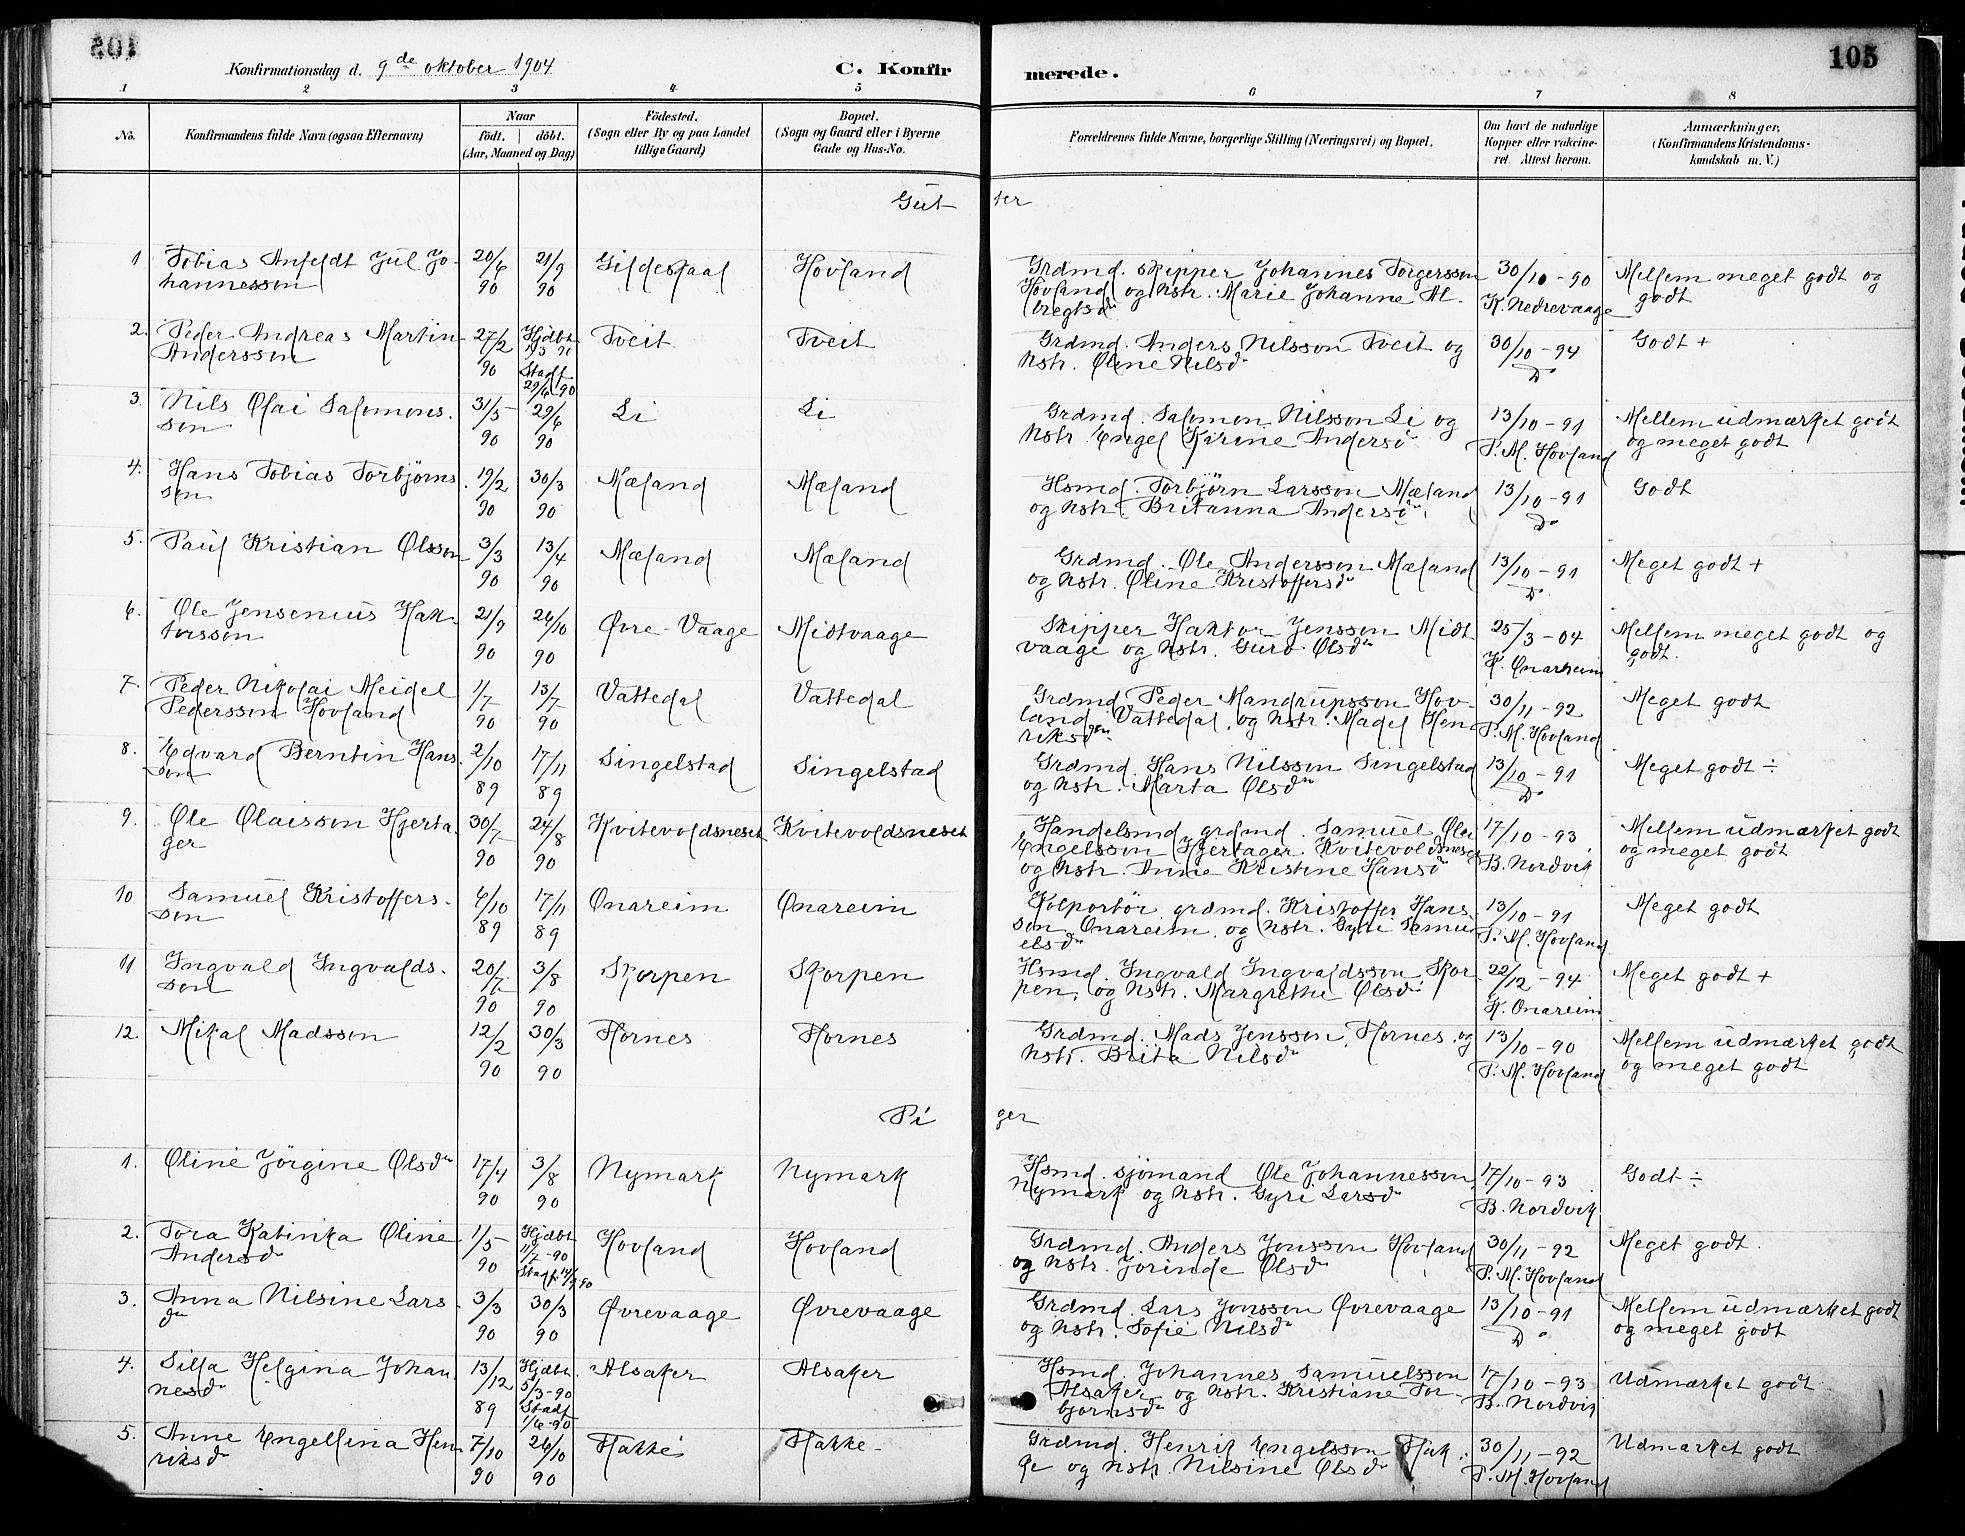 105
Konfirmationsdag d. 9de oktober 1904
C. Konfirmerede.
1 2 3 4 5 6 7 8
No.
Konfirmandens fulde Navn (ogsaa Efternavn)
Naar
födt. döbt.
(Aar, Maaned og Dag)
Födested.
(Sogn eller By og paa Landet
tillige Gaard)
Bopæl.
(Sogn og Gaard eller i Byerne
Gade og Hus-No.
Forældrenes fulde Navne, borgerlige Stilling (Næringsvei) og Bopæl.
Om havt de naturlige
Kopper eller vakcine-
ret. Attest herom.
Anmærkninger,
(Konfirmandens Kristendoms-
kundskab m. V.)
Gutter
1 Tobias Anfeldt Jul Jo-
hannesson
20/6 90
21/9 90
Gildeskaal
Hovland
Grdmd. skipper Johannes Torgersson
Hovland og hstr. Marie Johanne Al-
bregtsdr
30/10-90
K. Nedrevaage
Mellem meget godt og
godt
2. Peder Andreas Martin
Andersson
27/2 90
Hjdbt
Stadf.
29/6 90
Tveit
Tveit
Grdmd. Anders Nilsson Tveit og
hstr. Oline Nilsdr
30/10-94
Do
Godt +
3. Nils Olai Salomons-
son
31/5 90
29/6 90
Li
Li
Grdmd. Salomon Nilsson Li og
hstr. Engel Karine Andersdr
13/10-91
P. M. Hovland
Mellem udmærket godt
og meget godt
4. Hans Tobias Torbjörns-
son
19/2 90
30/3 90
Mæland
Mæland
Hsmd. Torbjörn Larsson Mæland
og hstr. Britanna Andersdr
13/10-91
Do
Godt
5. Paul Kristian Olsson
3/3 90
13/4 90
Mæland
Mæland
Grdmd. Ole Andersson Mæland
og hstr. Oline Kristoffersdr
13/10-91
Do
Meget godt +
6. Ole Jensenius Hak-
torsson
21/9 90
26/10 90
Øvre-Vaage
Midtvaage
Skipper Haktor Jensson Midt
vaage og hstr. Guro Olsdr
25/3-04
K. Onarheim
Mellem meget godt og
godt.
7. Peder Nikolai Meidel
Pedersson Hovland
1/7 90
13/7 90
Vattedal
Vattedal
Grdmd. Peder Mandrupsson Hov-
land, Vattedal, og hstr. Madel Hen
riksdr
30/11-92
P. M. Hovland
Meget godt
8. Edvard Berntin Hans
son
2/10 89
17/11 89
Singelstad
Singelstad
Grdmd. Hans Nilsson Singelstad
og hstr. Marta Olsdr
13/10-91
Do
Meget godt ÷
9. Ole Olaisson Hjerta-
ger
30/7 90
24/8 90
Kvitevoldsneset
Kvitevoldsneset
Handelsmd. grdmd. Samuel Olai
Engelsson Hjertager Kvitevoldsneset
og hstr. Anne Kristine Hansdr
17/10-93
B. Nordvik
Mellem udmærket godt
og meget godt
10 Samuel Kristoffers-
son
6/10 89
17/11 89
Onareim
Onareim
Kolportör grdmd. Kristoffer Hans
son Onareim og hstr. Gyri Samu
elsdr
13/10-91
P. M. Hovland
Meget godt
11 Ingvald Ingvalds-
son
20/7 90
3/8 90
Skorpen
Skorpen
Hsmd. Ingvald Ingvaldsson Skor
pen, og hstr. Margrethe Olsdr
22/12-94
K. Onareim
Meget godt +
12. Mikal Madsson
12/2 90
30/3 90
Flornes
Flornes
Grdmd. Mads Jensson Flornes og
hstr. Brita Nilsdr
13/10-90
P. M. Hovland
Mellem udmærket godt
og meget godt
Piger
1. Oline Jörgine Olsdr
17/4 90
3/8 90
Nymark
Nymark
Hsmd. sjömand Ole Johannesson
Nymark og hstr. Gyri Larsdr
17/10-93
B. Nordvik
Godt ÷
2. Tora Katinka Oline
Andersdr
1/5 90
Hjdbt
11/7-90
Stadf.
Hovland
Hovland
Grdmd. Anders Jonsson Hovland
og hstr. Jorinde Olsdr
30/11-92
P. M. Hovland
Meget godt.
3. Anna Nilsine Lars
dr
3/3 90
30/3 90
Øvrevaage
Øvrevaage
Grdmd. Lars Jonsson Øvrevaage
og hstr. Sofie Nilsdr
13/10-91
Do
Mellem udmærket godt
og meget godt
4. Silla Helgina Johan
nesdr
13/12 89
Hjdbt.
5/3-90
Stadf
1/6-90
Alsaker
Alsaker
Hsmd. Johannes Samuelsson
Alsaker og hstr. Kristiane Tor-
bjørnsdr
17/10-93
B. Nordvik
Udmærket godt
5. Anne Engellina Hen
riksdr
7/10 90
26/10 90
Flakke
Flakke
Grdmd. Henrik Engelsson Flak-
ke og hstr. Nilsine Olsdr
30/11-92
P. M. Hovland
Udmærket godt